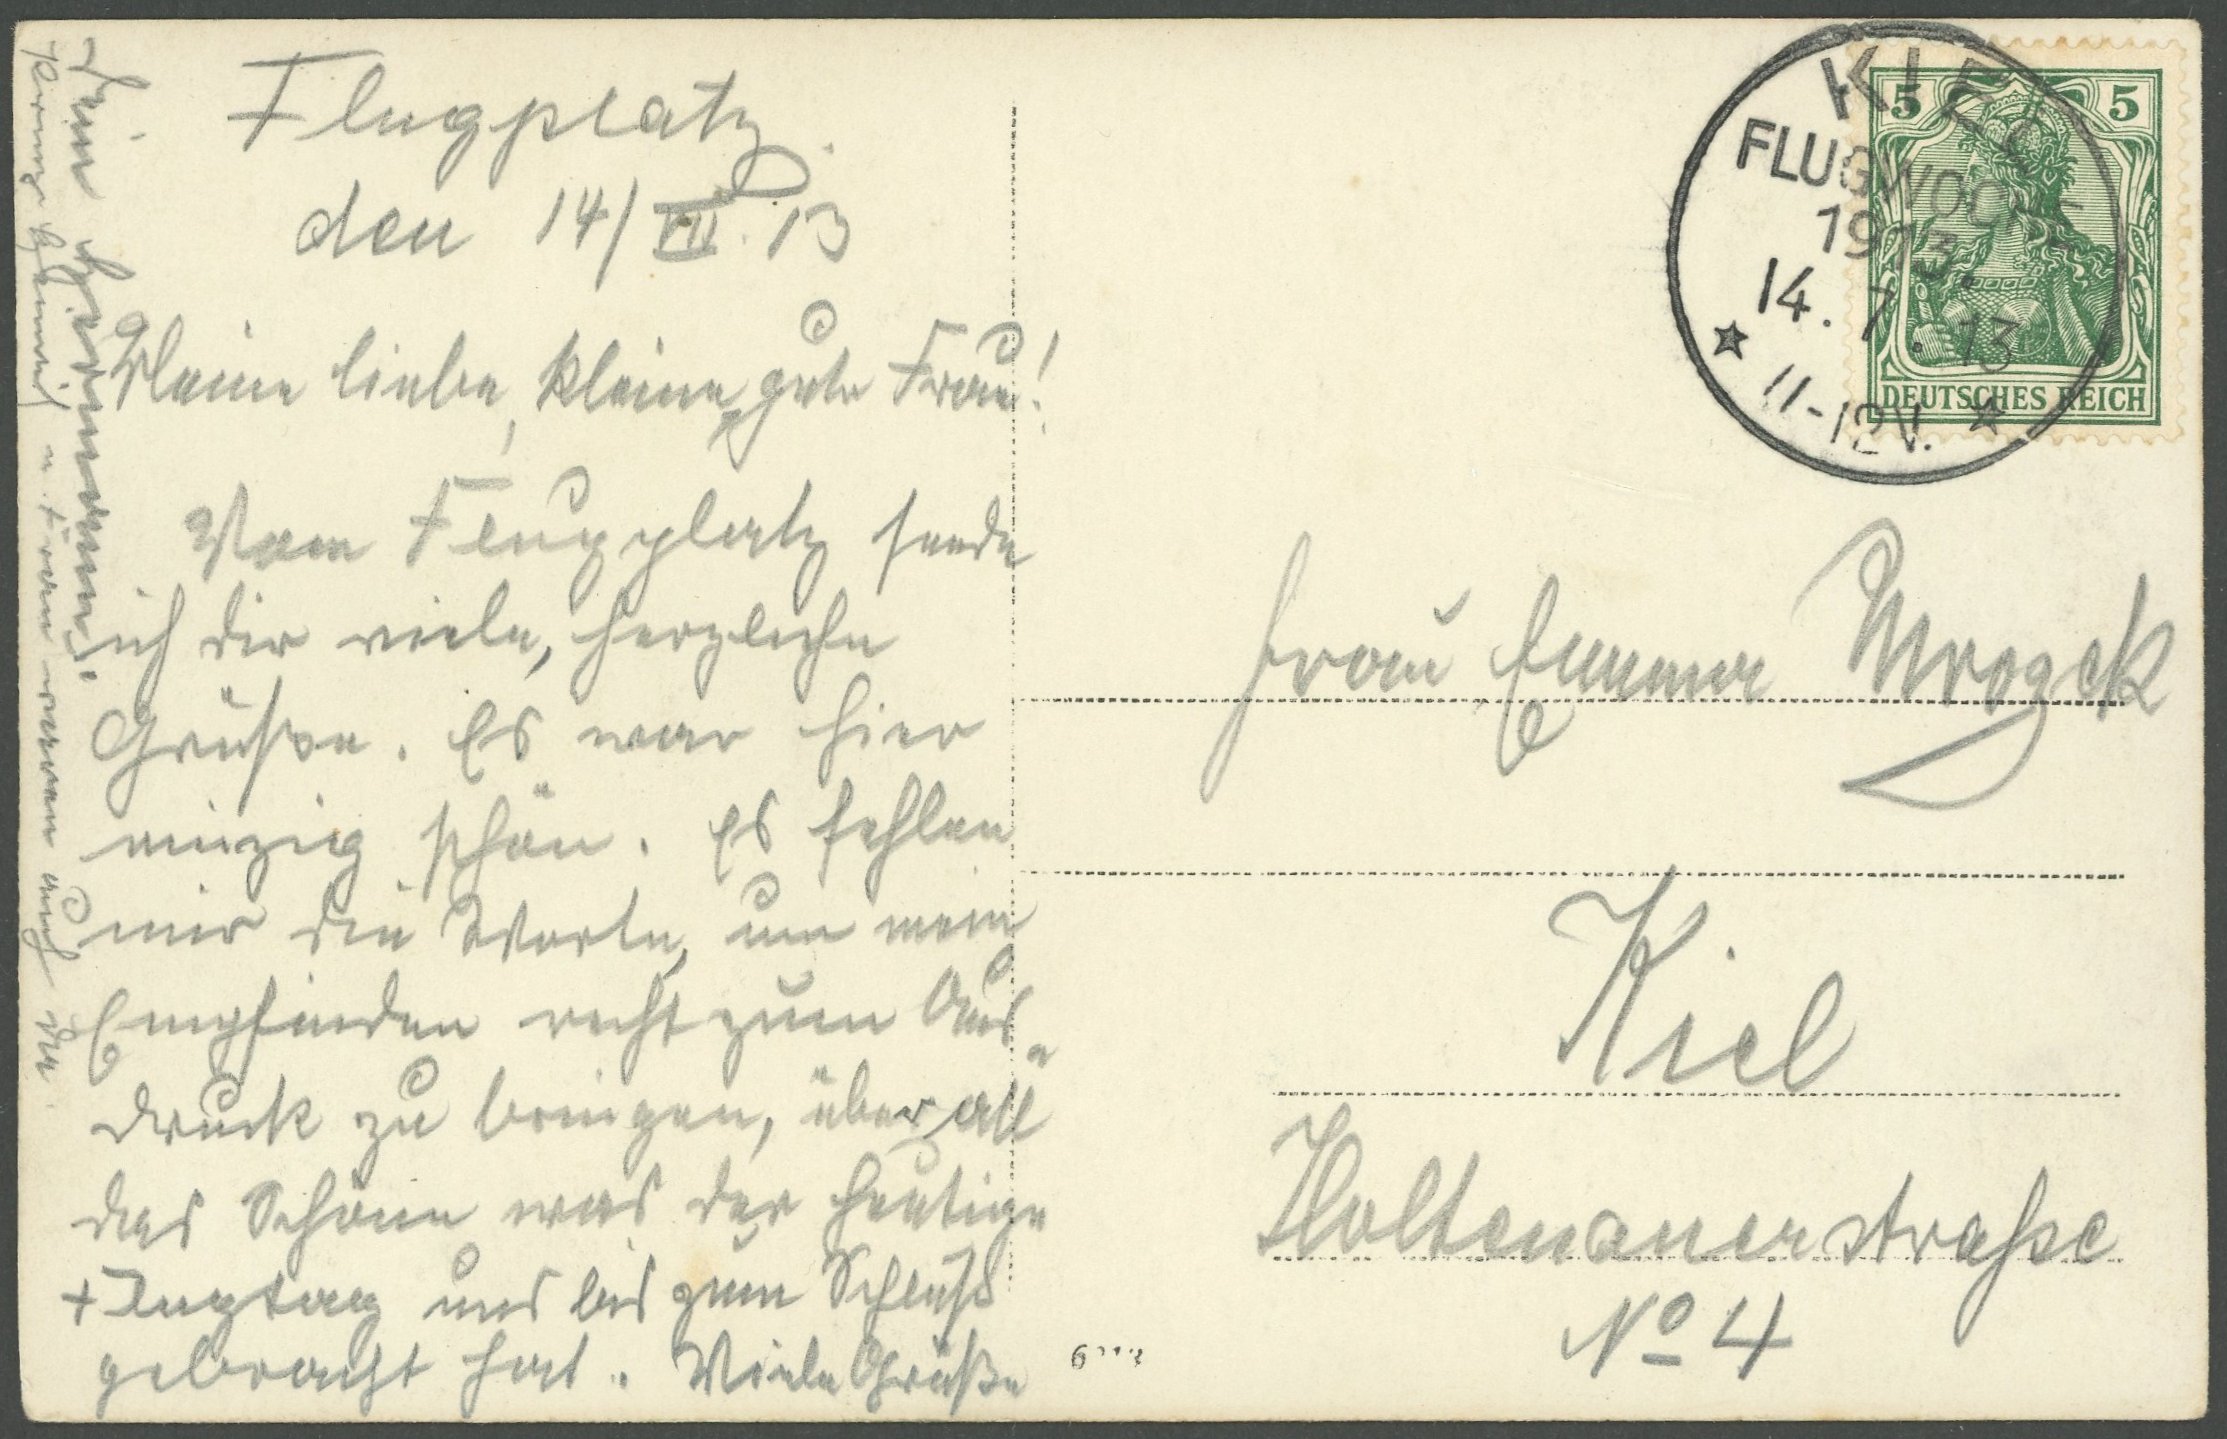 Flugplatz
den 14/VII. 13
Meine liebe, kleine, gute Frau!
Vom Flugplatz sende
ich dir viele, herzliche
Grüße. Es war hier
einzig schön. Es fehlen
mir die Worte, um mein
Empfinden recht zum Aus-
druck zu bringen, über all
das Schöne was der heutige
Flugtag uns bis zum Schluß
gebracht hat. Viele Grüße
Dein Hermann.
u. Frau waren auch da.
KIEL
FLUGWOCHE
1913.
14.7.13
11-12V.
5 5
DEUTSCHES REICH
Frau Emma
Kiel
Holtenauerstraße
No 4